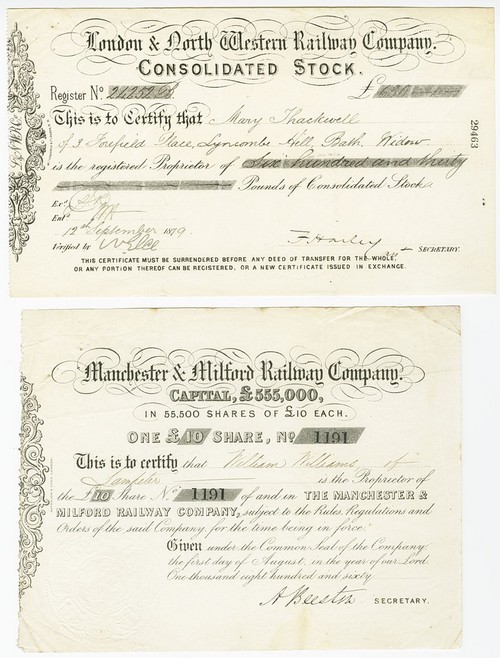 London & North Western Railway Company.
CONSOLIDATED STOCK.
Register No. £630
This is to Certify that Mary Thackwell
of 3 Forefield Place, Lyncombe Hill, Bath, Widow
is the registered Proprietor of Six hundred and thirty
Pounds of Consolidated Stock.
Exd.
Entd.
12th September 1879
Verified by
SECRETARY.
THIS CERTIFICATE MUST BE SURRENDERED BEFORE ANY DEED OF TRANSFER FOR THE WHOLE,
OR ANY PORTION THEREOF CAN BE REGISTERED, OR A NEW CERTIFICATE ISSUED IN EXCHANGE.
29463
Manchester & Milford Railway Company.
CAPITAL, £555,000,
IN 55,500 SHARES OF £10 EACH.
ONE £10 SHARE, No. 1191
This is to certify that William Williams of
is the Proprietor of
the £10 Share No. 1191 of and in THE MANCHESTER &
MILFORD RAILWAY COMPANY, subject to the Rules, Regulations and
Orders of the said Company, for the time being in force.
Given under the Common Seal of the Company
the first day of August, in the year of our Lord
One thousand eight hundred and sixty.
A Beeston SECRETARY.